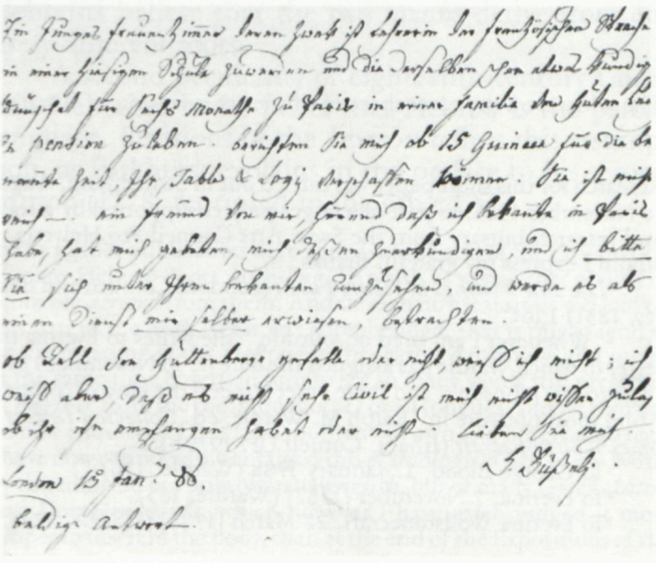 Ein Junges frauenZimmer deren Zwek ist Lehrerin der französischen Sprache
in einer hiesigen Schule zuwerden und die derselben schon etwas kundig
wünschet für Sechs Monathe zu Paris in einer familie von guten
in pension zuleben. berichten Sie mich ob 15 Guineen für die be
nannte Zeit, Ihr, Table & Logi verschaffen können. Sie ist nicht
reich — ein freund von mir, hörend daß ich bekante in Paris
habe, hat mich gebeten, mich deßen zuerkundigen, und ich bitte
Sie sich unter Ihren bekanten umzusehen, und werde es als
einen Dienst mir selber erwiesen, betrachten
ob Tell den gefalle oder nicht, weiss ich nicht; ich
weiß aber, daß es nicht sehr Civil ist mich nicht wißen zulaß
ob ihr ihn empfangen habet oder nicht. lieben Sie mich
H. Füßli.
London 15 Jan. 88.
baldige Antwort